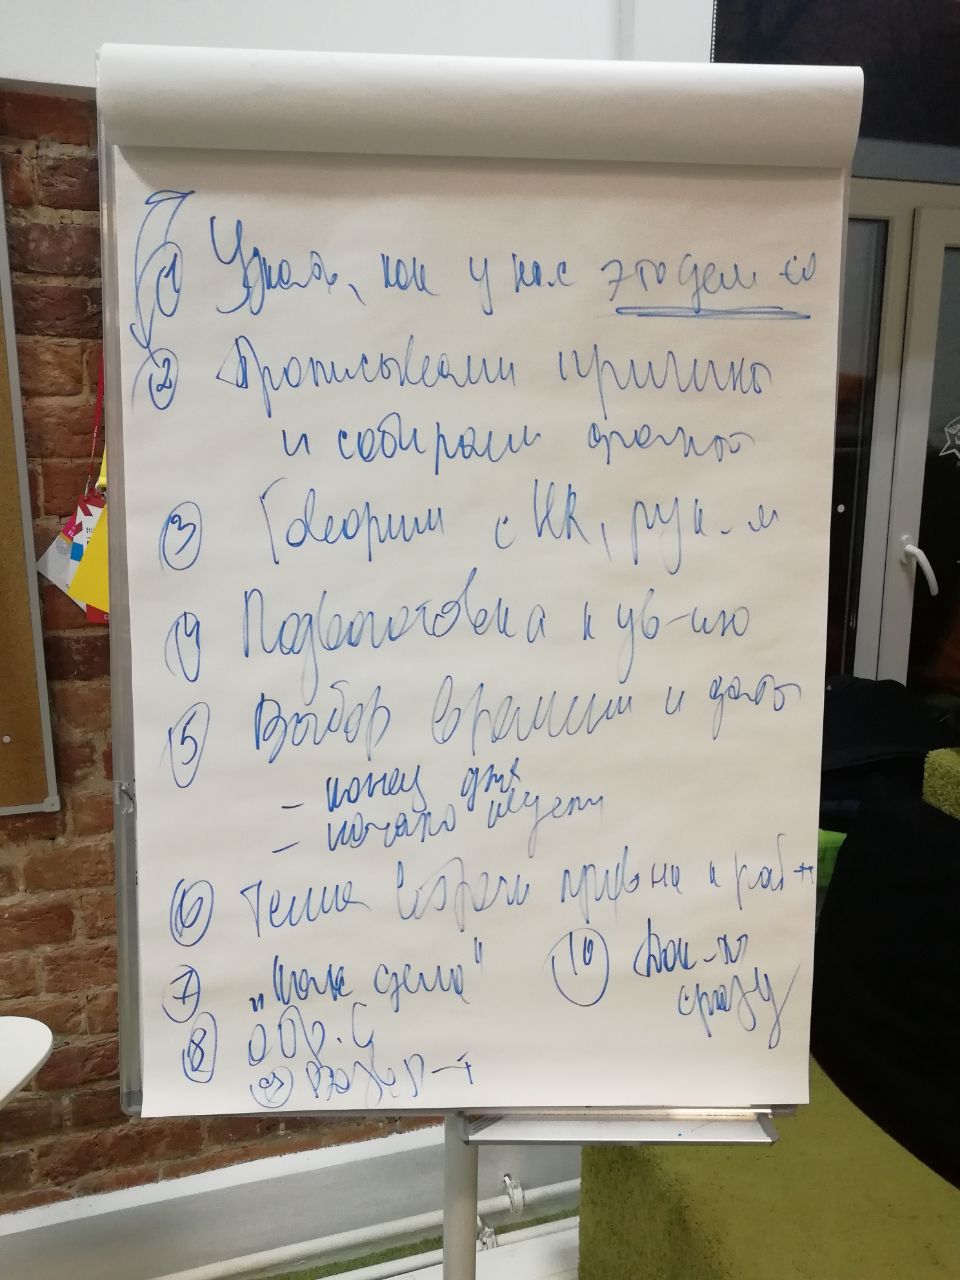 1 Узнать, как у нас это дел-ся
2 Прописываем причины
и собираем факты
3 Говорим с HR, рук-м
4 Подготовка к ув-ию
5 Выбор времени и даты
- конец дня
- начало недели
6 Тема встречи
7 "Как дела"
8 обр. С
9
10 Док-ты
сразу